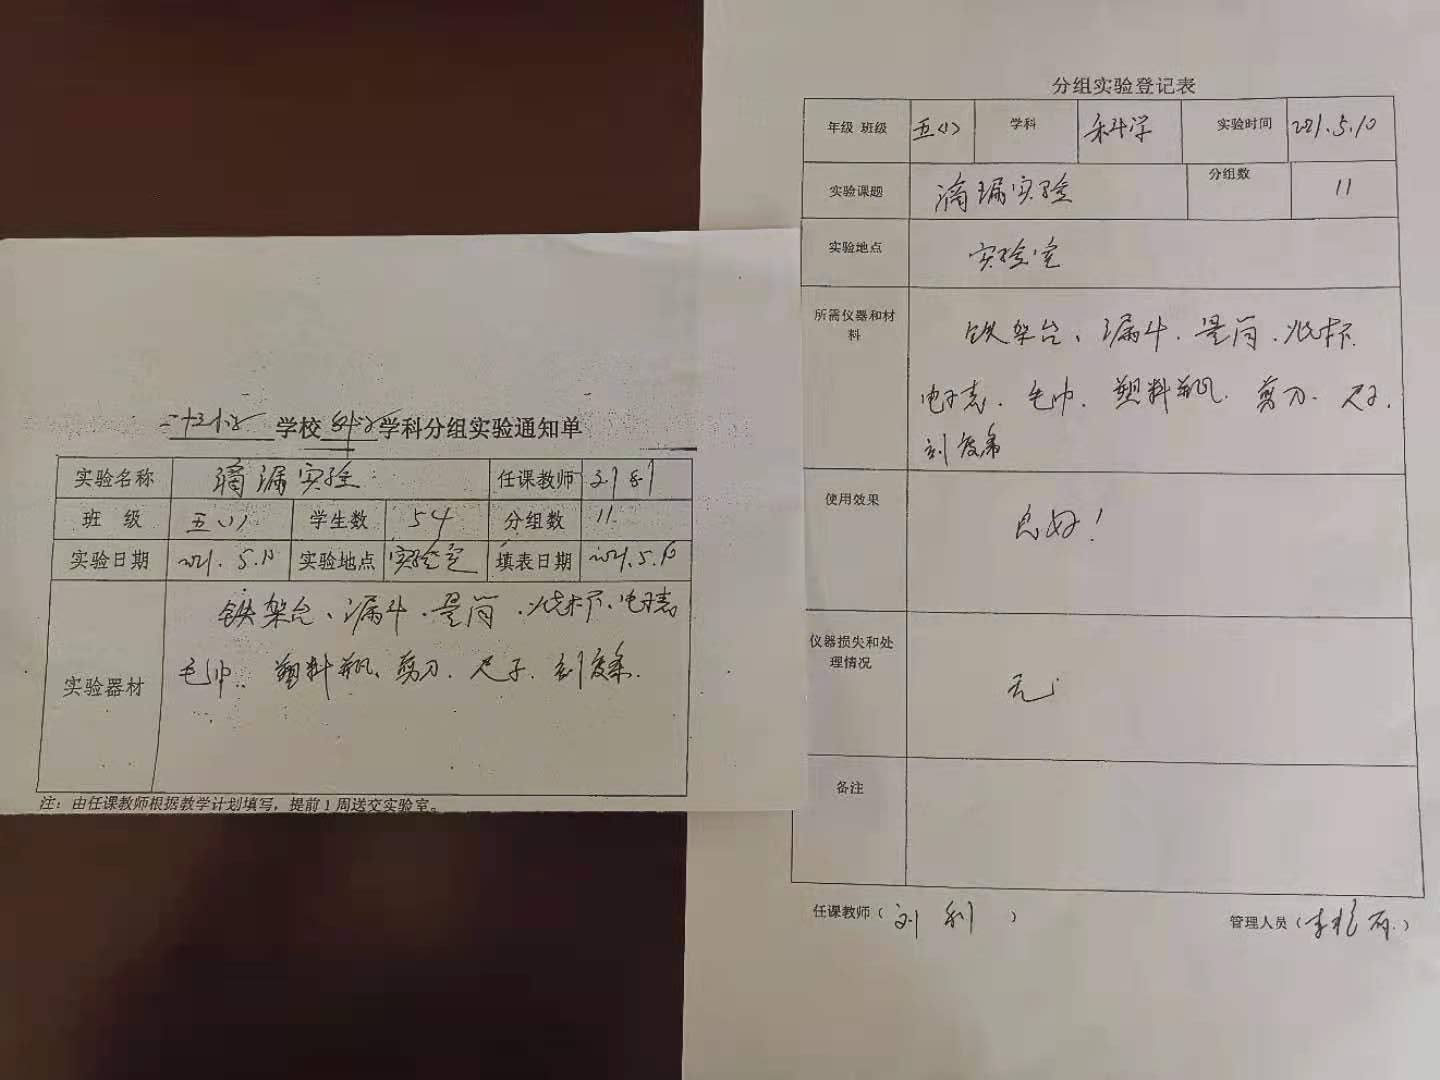 二十三小 学校 科学 学科分组实验通知单
实验名称 滴漏实验 任课教师 刘利
班 级 五(1) 学生数 54 分组数 11
实验日期 2021.5.10 实验地点 实验室 填表日期 2021.5.10
实验器材 铁架台、漏斗.量筒.烧杯、电子表
毛巾.塑料瓶、剪刀.尺子.刻度条.
注：由任课教师根据教学计划填写，提前1周送交实验室。
分组实验登记表
年级 班级 五(1) 学科 科学 实验时间 2021.5.10
实验课题 滴漏实验 分组数 11
实验地点 实验室
所需仪器和材
料
铁架台、漏斗.量筒.烧杯.
电子表.毛巾.塑料瓶.剪刀.尺子.
刻度条
使用效果 良好！
仪器损失和处
理情况
无
备注
任课教师（刘利） 管理人员（李）